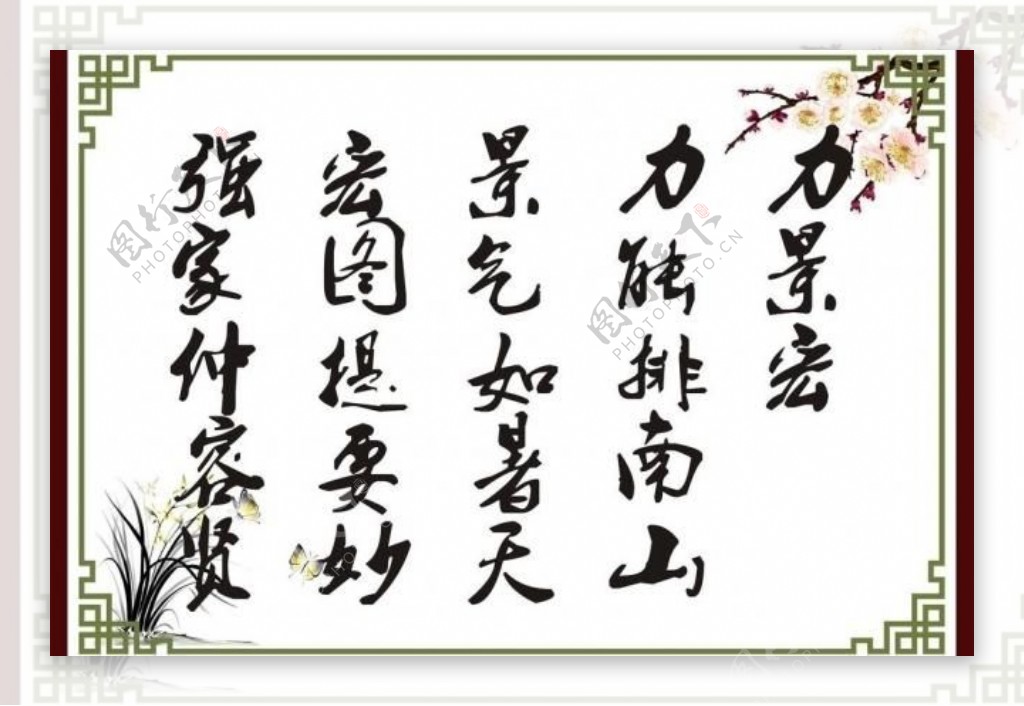 力景宏
力能排南山
景气如暑天
宏图提要妙
强家仲容贤
图行天下
PHOTOPHOTO.CN
图行天下
PHOTOPHOTO.CN